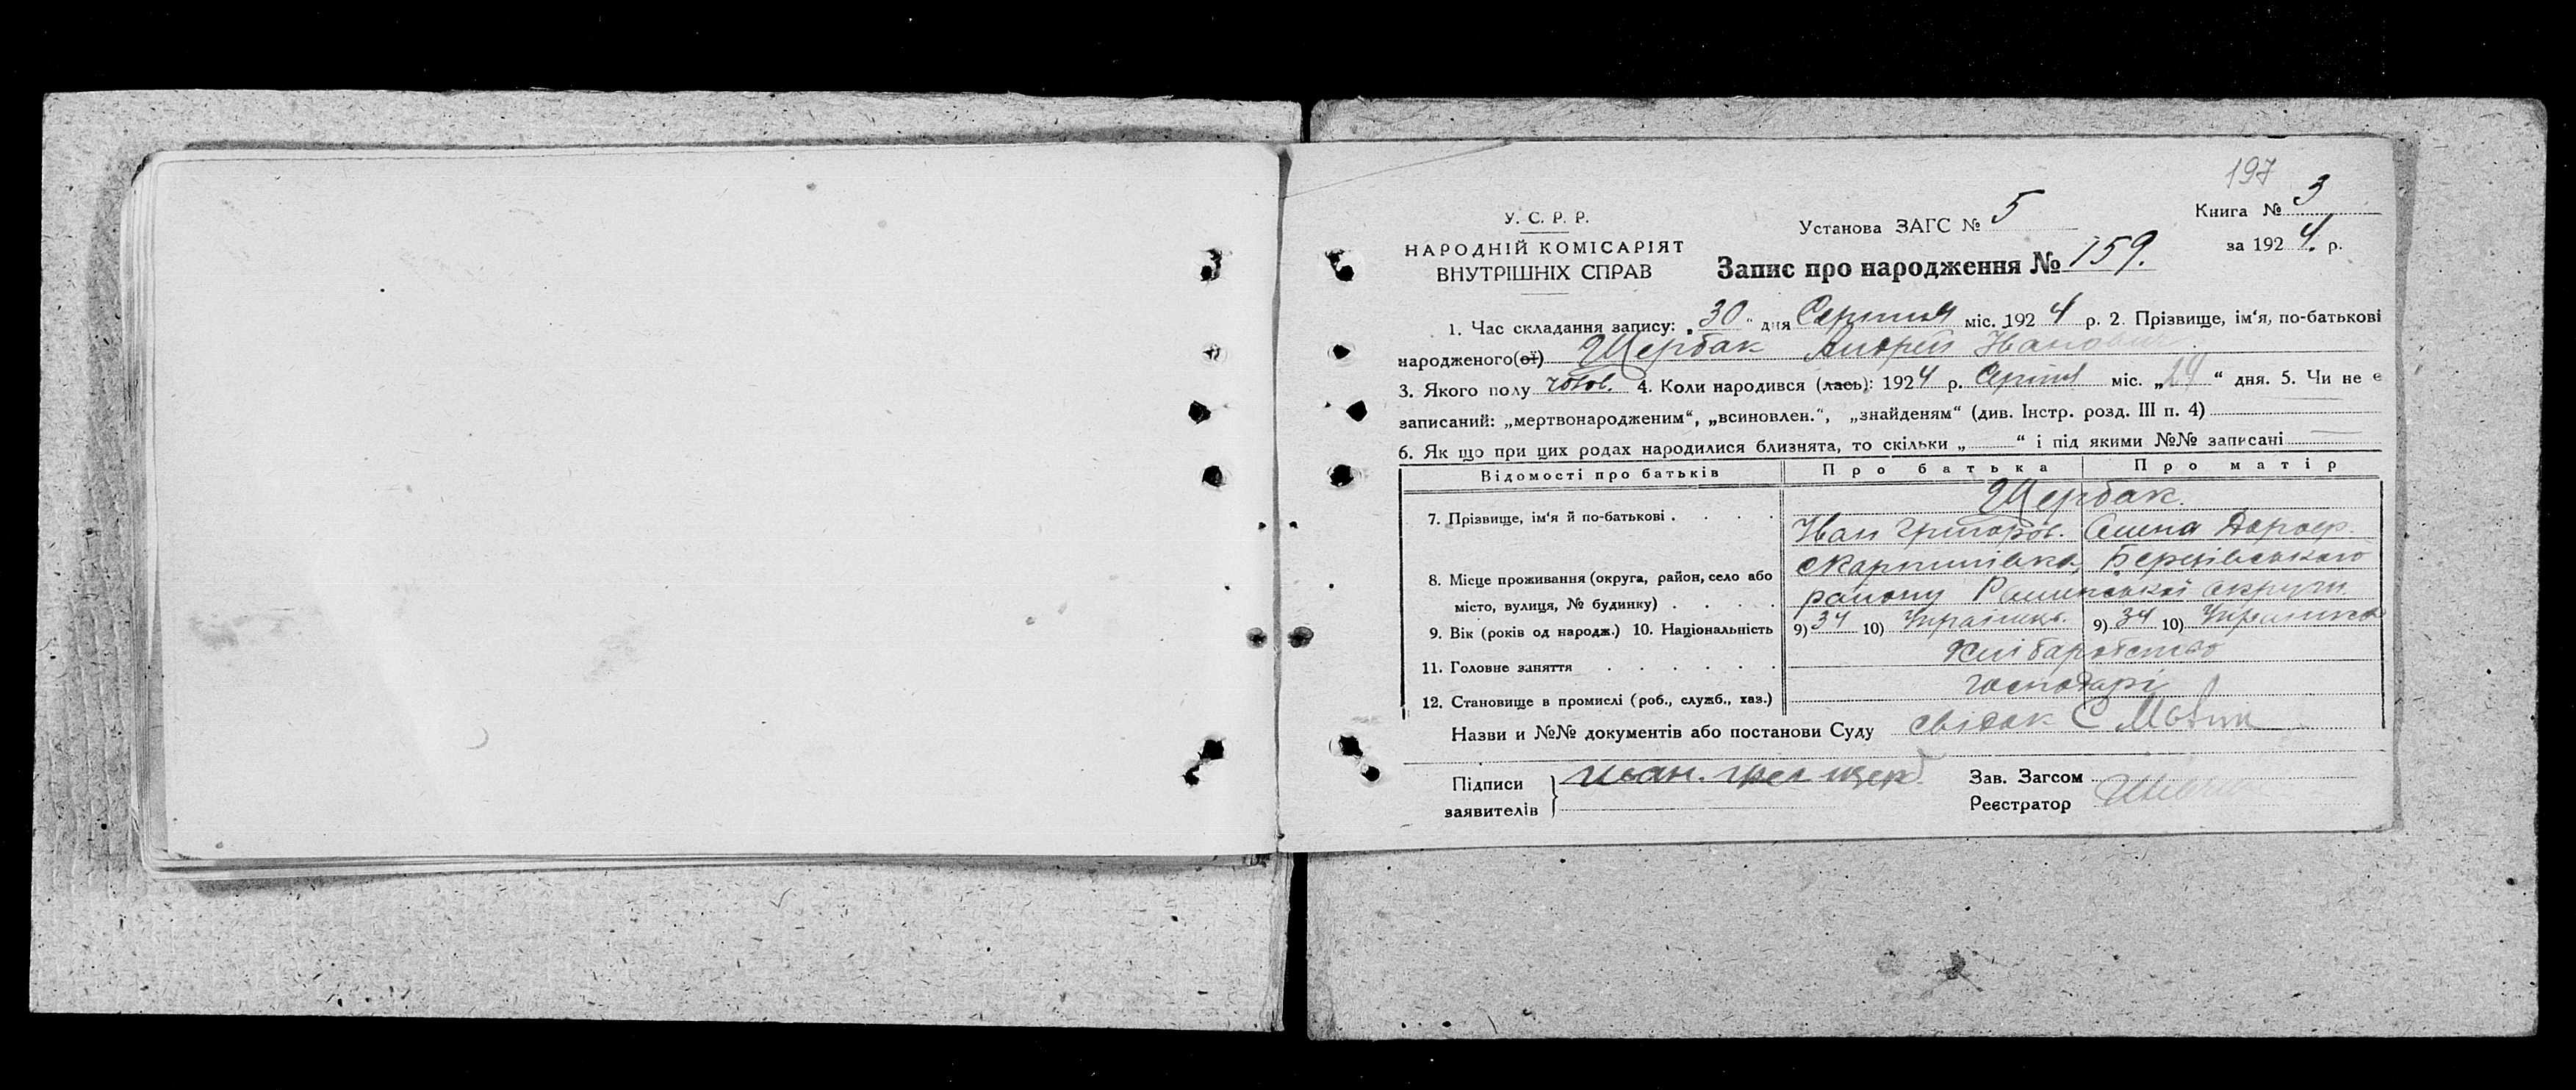 197
У. С. Р. Р.
НАРОДНІЙ КОМІСАРІЯТ
ВНУТРІШНІХ СПРАВ
Установа ЗАГС № 5
Книга № 3
за 1924 р.
Запис про народження № 159.
1. Час складання запису: „30“ дня Серпня міс. 1924 р. 2. Прізвище, ім'я, по-батькові
народженого(ої) Щербак Андрей Іванович
3. Якого полу чолов. 4. Коли народився (лась): 1924 р. Серпня міс. „ “ дня. 5. Чи не є
записаний: „мертвонародженим“, „всиновлен.“, „знайденям“ (див. Інстр. розд. III п. 4)
6. Як що при цих родах народилися близнята, то скільки „ “ і під якими №№ записані
Відомості про батьків Про батька Про матір
7. Прізвище, ім'я й по-батькові . . . . Щербак.
Іван Григоров. Олена Дороф.
8. Місце проживання (округа, район, село або Бережівського
місто, вулиця, № будинку) . . . . району Роменської округи
9. Вік (років од народж.) 10. Національність 9) 34 10) Українець. 9) 34 10) Українка
11. Головне заняття . . . . . . Хліборобство
12. Становище в промислі (роб., служб., хаз.) господарі
Назви и №№ документів або постанови Суду свідок С
Підписи
заявителів
Иван. щерб
Зав. Загсом
Реєстратор